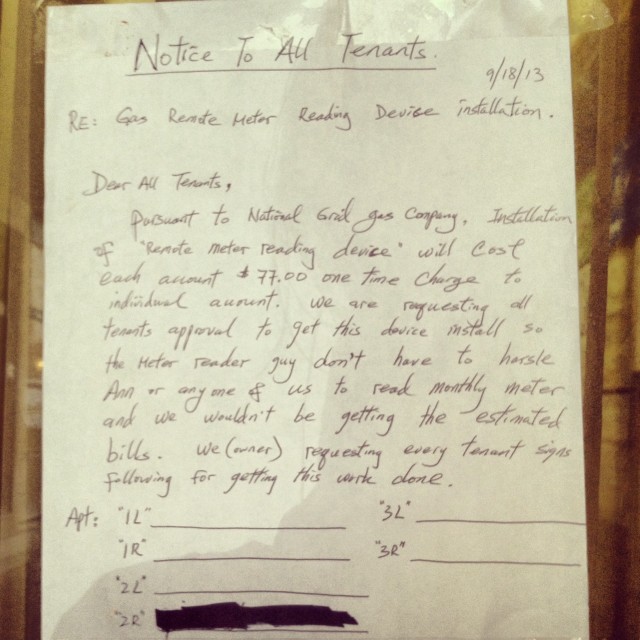 Notice To All Tenants.
9/18/13
RE: Gas Remote Meter Reading Device installation.
Dear All Tenants,
Pursuant to National Grid gas Company, Installation
of "Remote meter reading device" will cost
each account $77.00 one time charge to
individual account. we are requesting all
tenants approval to get this device install so
the meter reader guy don't have to harsle
Ann or anyone of us to read monthly meter
and we wouldn't be getting the estimated
bills. we (owner) requesting every tenant signs
following for getting this work done.
Apt: "1L" "3L"
"1R" "3R"
"2L"
"2R"